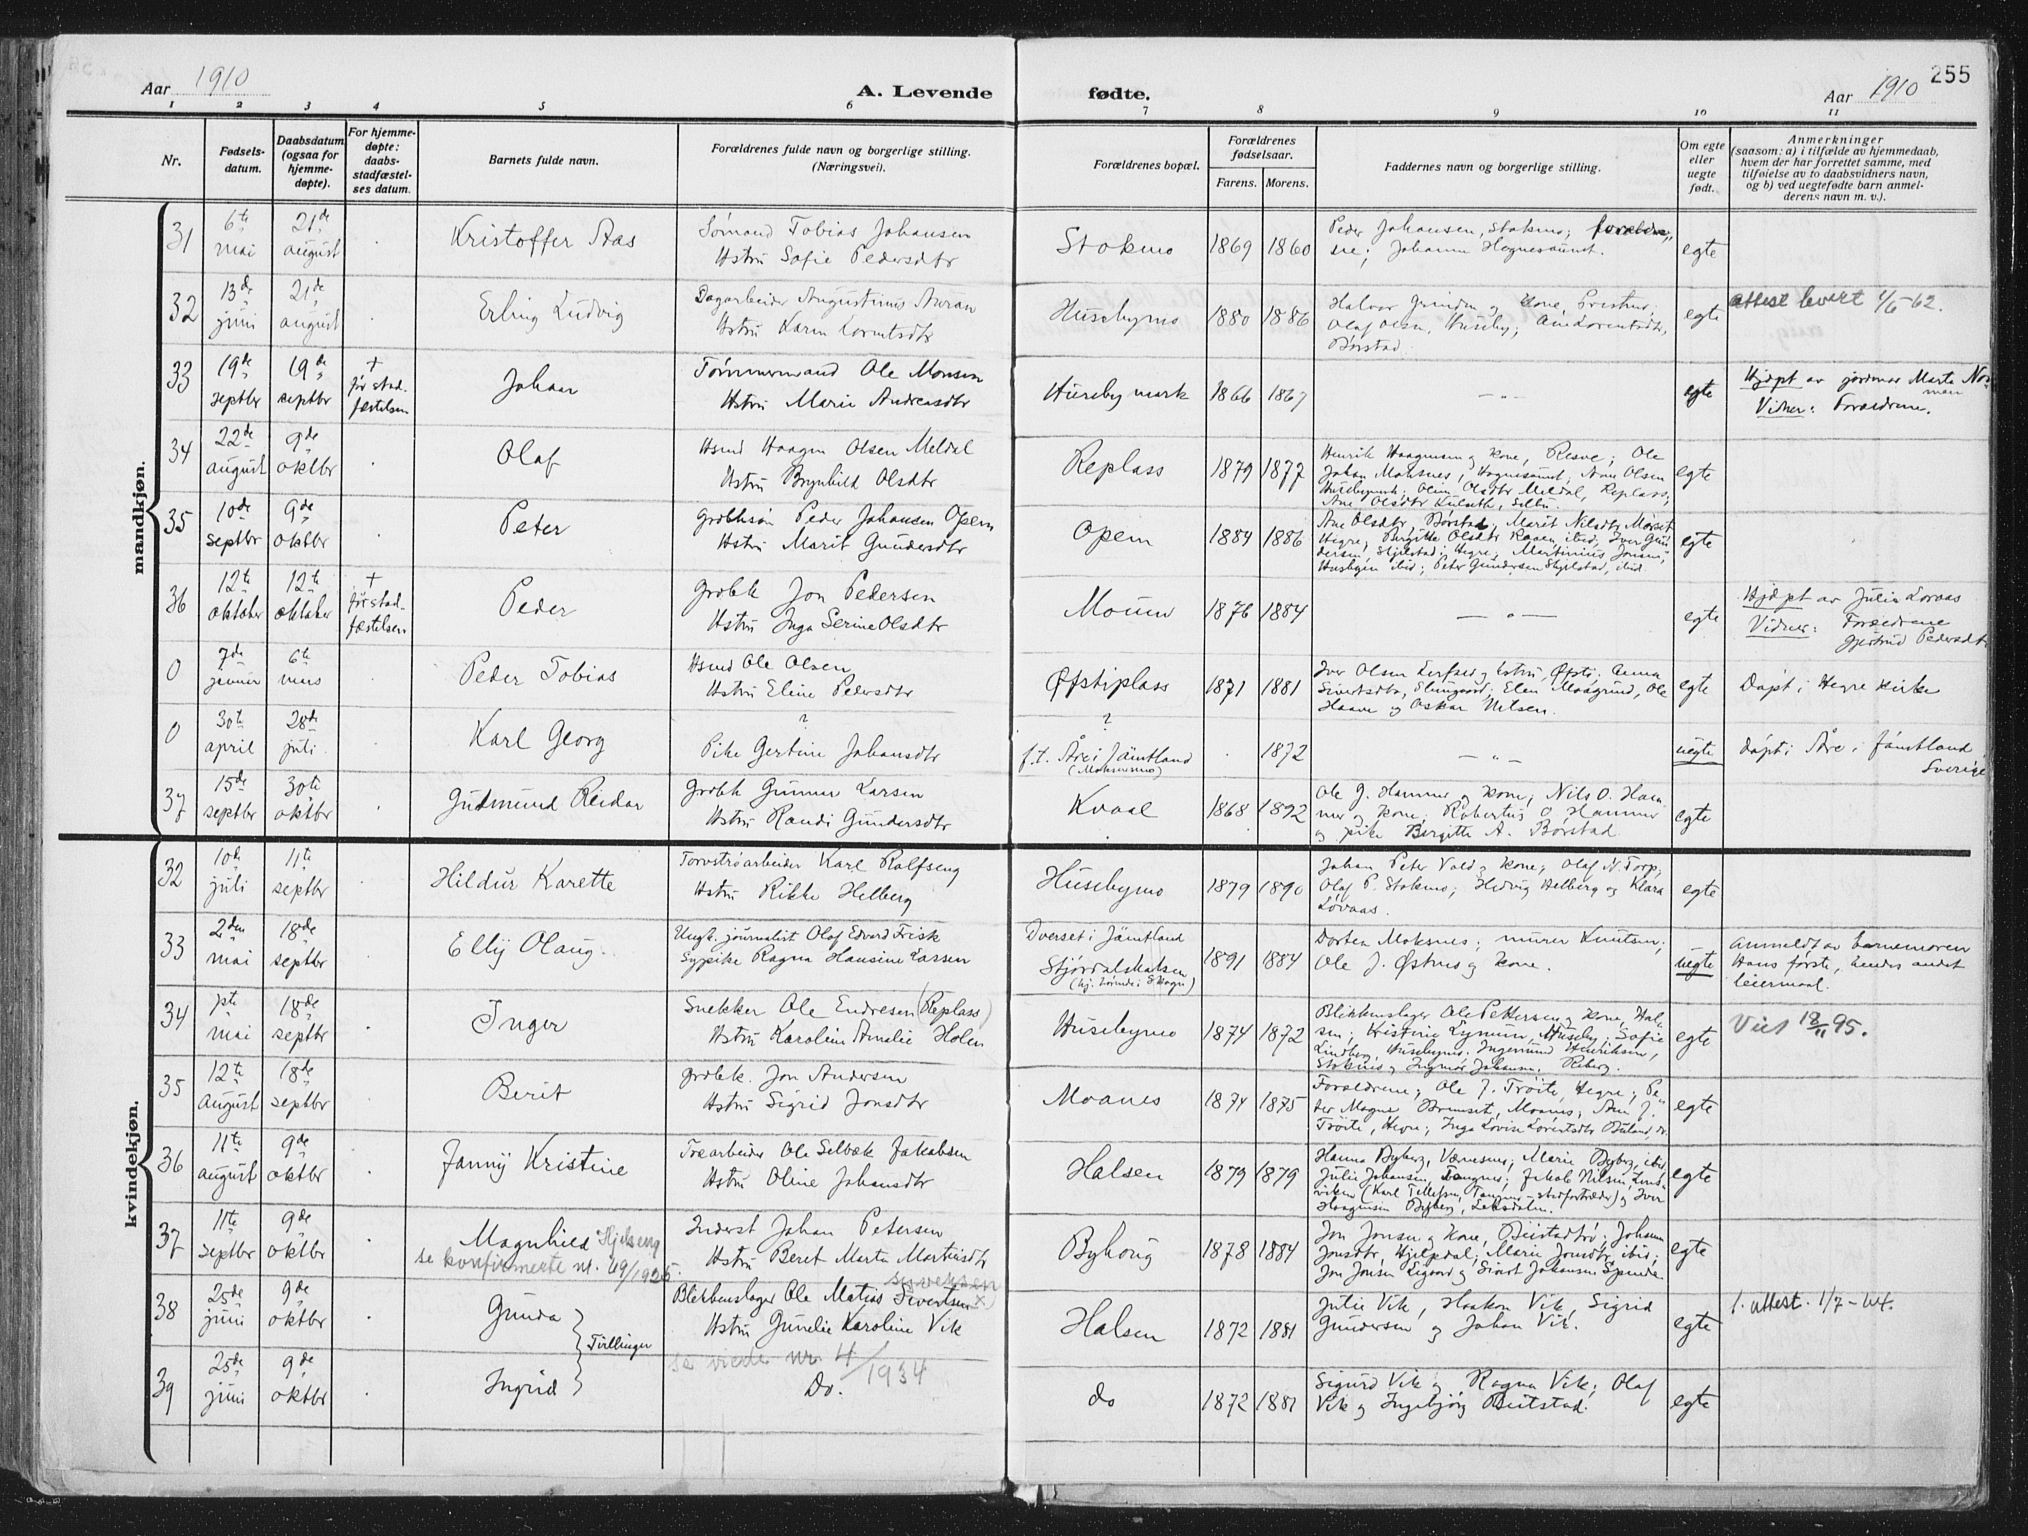 255
Aar 1910
A. Levende fødte.
Aar 1910
1 2 3 4 5 6 7 8 9 10 11
Nr.
Fødsels-
datum.
Daabsdatum
(ogsaa for
hjemme-
døpte).
For hjemme-
døpte:
daabs-
stadfæstel-
ses datum.
Barnets fulde navn.
Forældrenes fulde navn og borgerlige stilling.
(Næringsvei).
Forældrenes bopæl.
Forældrenes
fødselsaar.
Farens. Morens.
Faddernes navn og borgerlige stilling.
Om egte
eller
uegte
født.
Anmerkninger
(saasom: a) i tilfælde av hjemmedaab,
hvem der har forrettet samme, med
tilføielse av to daabsvidners navn,
og b) ved uegtefødte barn anmel-
derens navn m. v.).
mandkjøn.
31 6te mai 21de august Kristoffer Aas
Sømand Tobias Johansen
Hstru Sofie Pedersdtr
Stokmo 1869 1860
Peder Johansen, Stokmo; foreldre,,
ne; Johanna Hognesaunet.
egte
32 13de juni 21de august Erling Ludvig
Dagarbeider Augustinus Auran
Hstru Karen Lorentsdtr
Husebymo 1880 1886
Halvor Grinden og kone,
Olaf Olsen, Huseby;
Børstad.
egte
attest levert 4/6-62.
33 19de septbr 19de septbr + før stad-
fæstelsen
Johan
Tømmermand Ole Monsen
Hstru Marie Andreasdtr
Husebymark 1866 1867 — " — egte
Hjdpt av jordmor Marta Nor
man
Vidner: Forældrene.
34 22de august 9de oktbr Olaf
Hsmd Haagen Olsen Meldal
Hstru Brynhild Olsdtr
Replass 1879 1877
Henrik Haagensen og kone, Resve; Ole
Johan Moksnes, Hognesaunet;
Olsdtr Meldal, Replass;
Ane Olsdtr Kulseth, Selbu.
egte
35 10de septbr 9de oktbr Peter
Grdbksøn Peder Johansen Opem
Hstru Marit Gundersdtr
Opem 1884 1886
Ane Olsdtr, Børstad, Marit Nilsdtr Mørset
Hegre; Birgitte Olsdtr Raaen, ibid; Iver Gun-
dersen, Skjelstad, Hegre; Martinius Jonsen,
Husbyen ibid; Peter Gundersen Skjelstad, ibid
egte
36 12te oktober 12te oktober + før stad-
fæstelsen
Peder
Grdbk Jon Pedersen
Hstru Inga Serine Olsdtr
Mouem 1876 1884 — " — egte
Hjdpt av Julia Lovaas
Vidner: Forældrene
Gjertrud Pedersdtr
0 7de januar 6te mars Peder Tobias
Hsmd Ole Olsen
Hstru Eline Pedersdtr
Øfstiplass 1871 1881
Iver Olsen Lerfald, Hstru, Øfsti; Anna
Sivertsdtr, Elvegaard; Elen Moagrind, Ole
Haave og Oskar Nilsen.
egte
Døpt i Hegre kirke
0 30te april 28de juli Karl Georg
?
Pike Gertine Johansdtr
?
f.t. Åre i Jämtland
(Moksnesmo)
1872 — " — uegte
døpt i Åre i Jämtland
Sverige
37 15de septbr 30te oktbr Gudmund Reidar
Grdbk Gunnar Larsen
Hstru Randi Gundersdtr
Kvaal 1868 1892
Ole J. Hammer og kone; Nils O. Ham
mer og kone; Robertus O. Hammer
og pike Bergitte A. Børstad
egte
kvindekjøn.
32 10de juli 11te septbr Hildur Karette
Torvstrøarbeider Karl Rolfseng
Hstru Rikke Helberg
Husebymo 1879 1890
Johan Peter Vold og kone; Olaf N. Torp;
Olaf P. Stokmo; Hedvig Helberg og Klara
Lovaas.
egte
33 2den mai 18de septbr Elly Olaug.
Ungk. journalist Olaf Edvard Frisk
Sypike Ragna Hansine Larsen
Dverset i Jämtland
Stjørdalshalsen
1891 1884
Dorten Moksnes; murer Knutsen;
Ole J. Østnes og kone.
uegte
Anmeldt av barnemoren
Hans første, hendes andet
leiermaal.
34 7de mai 18de septbr Inger
Snekker Ole Endresen (Replass)
Hstru Karoline Amalie Holen
Husebymo 1874 1872
Blikkenslager Ole Pettersen og kone, Hal-
sen; Kristine Husby; Sofie
Lindberg, Husebymo; Ingemund Henriksen,
Stokmo og Ingmar Johansen, Reberg.
egte
Viet 18/11 95.
35 12te august 18de septbr Berit
Grdbk. Jon Andersen
Hstru Sigrid Jonsdtr
Moanes 1874 1875
Forældrene; Ole J. Trøite, Hegre; Pe-
ter Magne Bremset, Moanes; Ane J.
Trøite, Hegre; Inga Lovise Lorentsdtr Buland, do
egte
36 11te august 9de oktbr Fanny Kristine
Træarbeider Ole Selbæk Jakobsen
Hstru Oline Johansdtr
Halsen 1879 1879
Hanna Byberg, Værnesmo; Marie Byberg, ibid
Julie Johansen, Tangmo; Jakob Nilsen, Lens-
viken (Karl Tellefsen, Tangmo - stedfortræder) og Iver
Haagensen Byberg, Leksdalen.
egte
37 11te septbr 9de oktbr Magnhild Hjelseng
se konfirmerte nr. 49/1925.
Inderst Johan Petersen
Hstru Beret Marta Martinsdtr
Byhaug 1878 1884
Jon Jonsen og kone, Beistadtrø; Johanna
Jonsdtr, Hjelpdal; Marie Jonsdtr ibid;
Jon Jonsen Ligaard og Sivert Johansen Spjelde
egte
38 25de juni 9de oktbr Gunda
Blikkenslager Ole Matias Sivertsen x)
Syversen
Hstru Gunelie Karoline Vik
Halsen 1872 1881
Julie Vik, Haakon Vik, Sigrid
Gundersen og Johan Vik.
egte
1. attest. 1/7-64.
Tvillinger
39 25de juni 9de oktbr Ingrid
se viede nr. 4/1934
Do.
do 1872 1881
Sigurd Vik og Ragna Vik; Olaf
Vik og Ingebjørg Beitstad.
egte